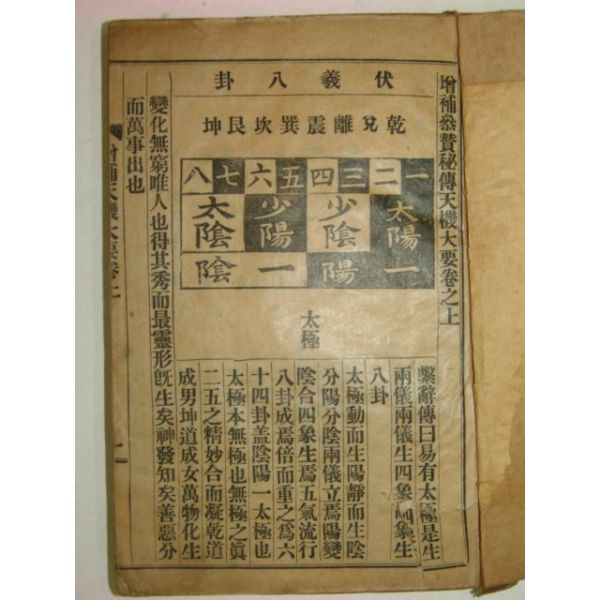 增補叅贊秘傳天機大要卷之上
伏羲八卦
乾兌離震巽坎艮坤
一二三四五六七八
太陽 少陰 少陽 太陰
一陽 一陰
太極
繫辭傳曰易有太極是生
兩儀兩儀生四象四象生
八卦
太極動而生陽靜而生陰
分陽分陰兩儀立焉陽變
陰合四象生焉五氣流行
八卦成焉倍而重之爲六
十四卦盖陰陽一太極也
太極本無極也無極之眞
二五之精妙合而凝乾道
成男坤道成女萬物化生
變化無窮唯人也得其秀而最靈形旣生矣神發知矣善惡分
而萬事出也
增補天機大要卷上